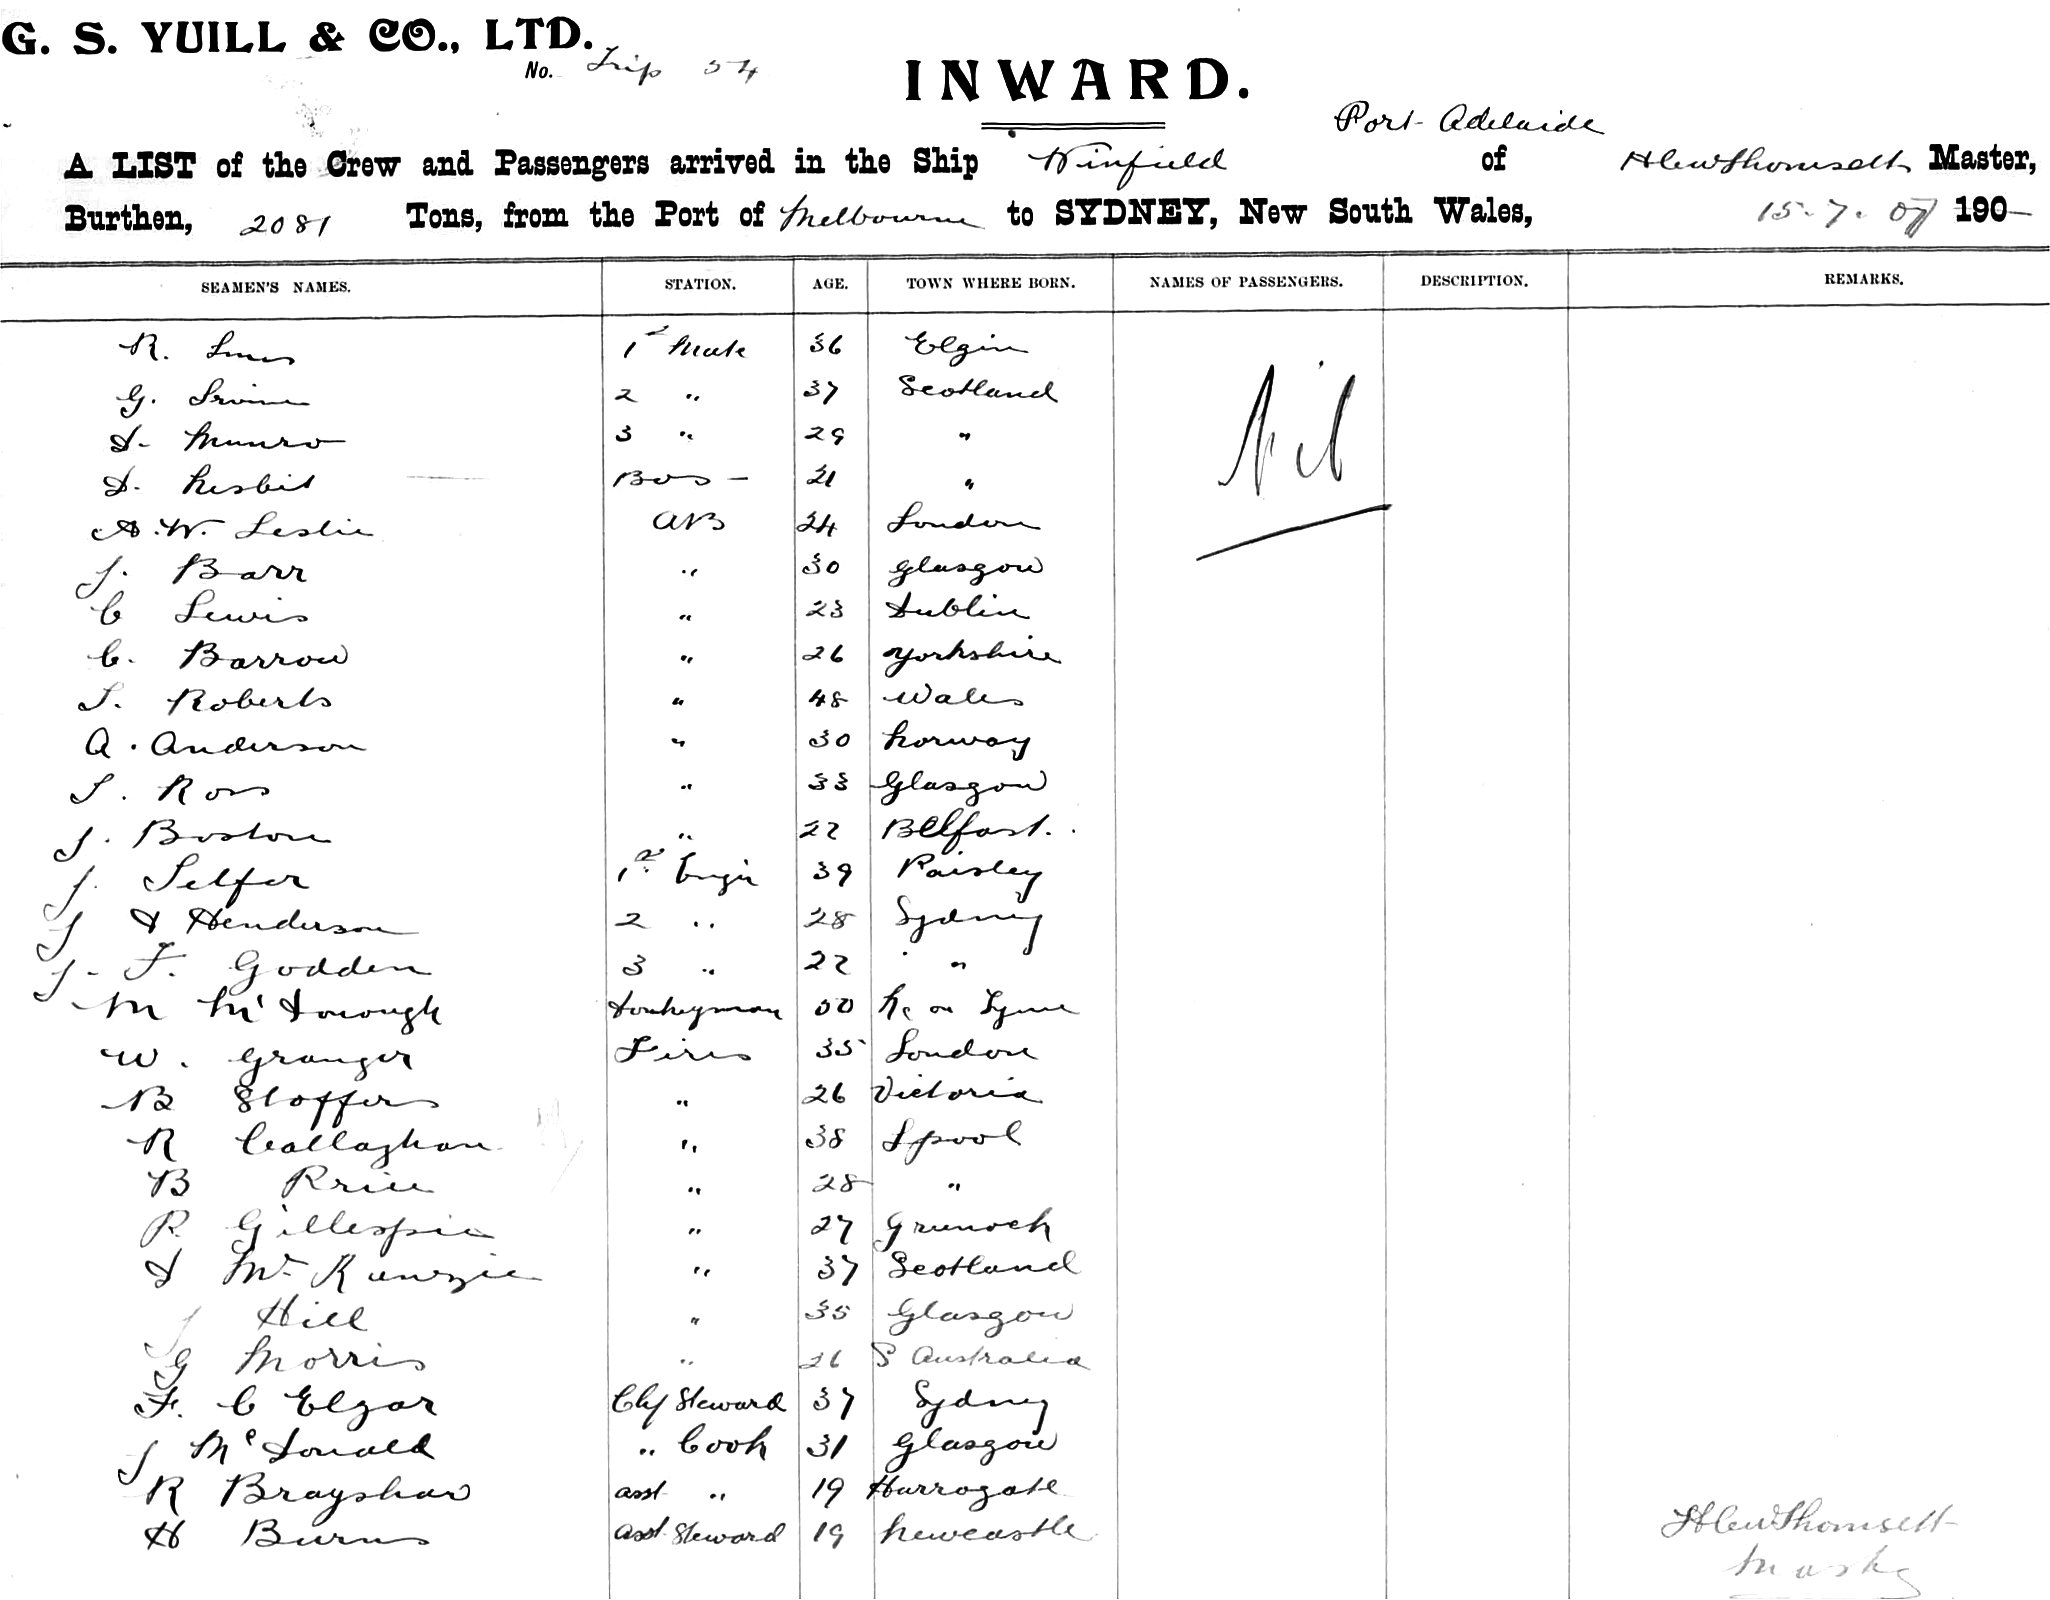 G. S. YUILL & CO., LTD.
No. Trip 54
INWARD.
Port Adelaide
A LIST of the Crew and Passengers arrived in the Ship Winfield of Master,
Burthen, 2081 Tons, from the Port of Melbourne to SYDNEY, New South Wales, 15.7.07 190-
SEAMEN'S NAMES. STATION. AGE. TOWN WHERE BORN. NAMES OF PASSENGERS. DESCRIPTION. REMARKS.
R. Innes 1st Mate 36 Elgin
G. Irvine 2 " 37 Scotland
D. Munro 3 " 29 "
D. Nesbit Bos - 21 "
Nil
A. W. Leslie AB 24 London
J. Barr " 30 Glasgow
C Lewis " 23 Dublin
C. Barrow " 26 Yorkshire
S. Roberts " 48 Wales
A. Anderson " 30 Norway
S. Ross " 33 Glasgow
J. Boston " 22 Belfast.
J. Telfer 1st Engr 39 Paisley
J D Henderson 2 " 28 Sydney
J. F. Godden 3 " 22 "
M McDonough Donkeyman 50 Nc on Tyne
W. Granger Fires 35 London
B Stoffers " 26 Victoria
R Callaghan " 38 Lpool
B Price " 28 "
R Gillespie " 27 Greenock
D McKenzie " 37 Scotland
J Hill " 35 Glasgow
G Morris " 26 S Australia
F. C Elgar Chf Steward 37 Sydney
J McDonald " Cook 31 Glasgow
R Brayshaw asst " 19 Harrogate
H Burns asst Steward 19 Newcastle
Thomsett
Master